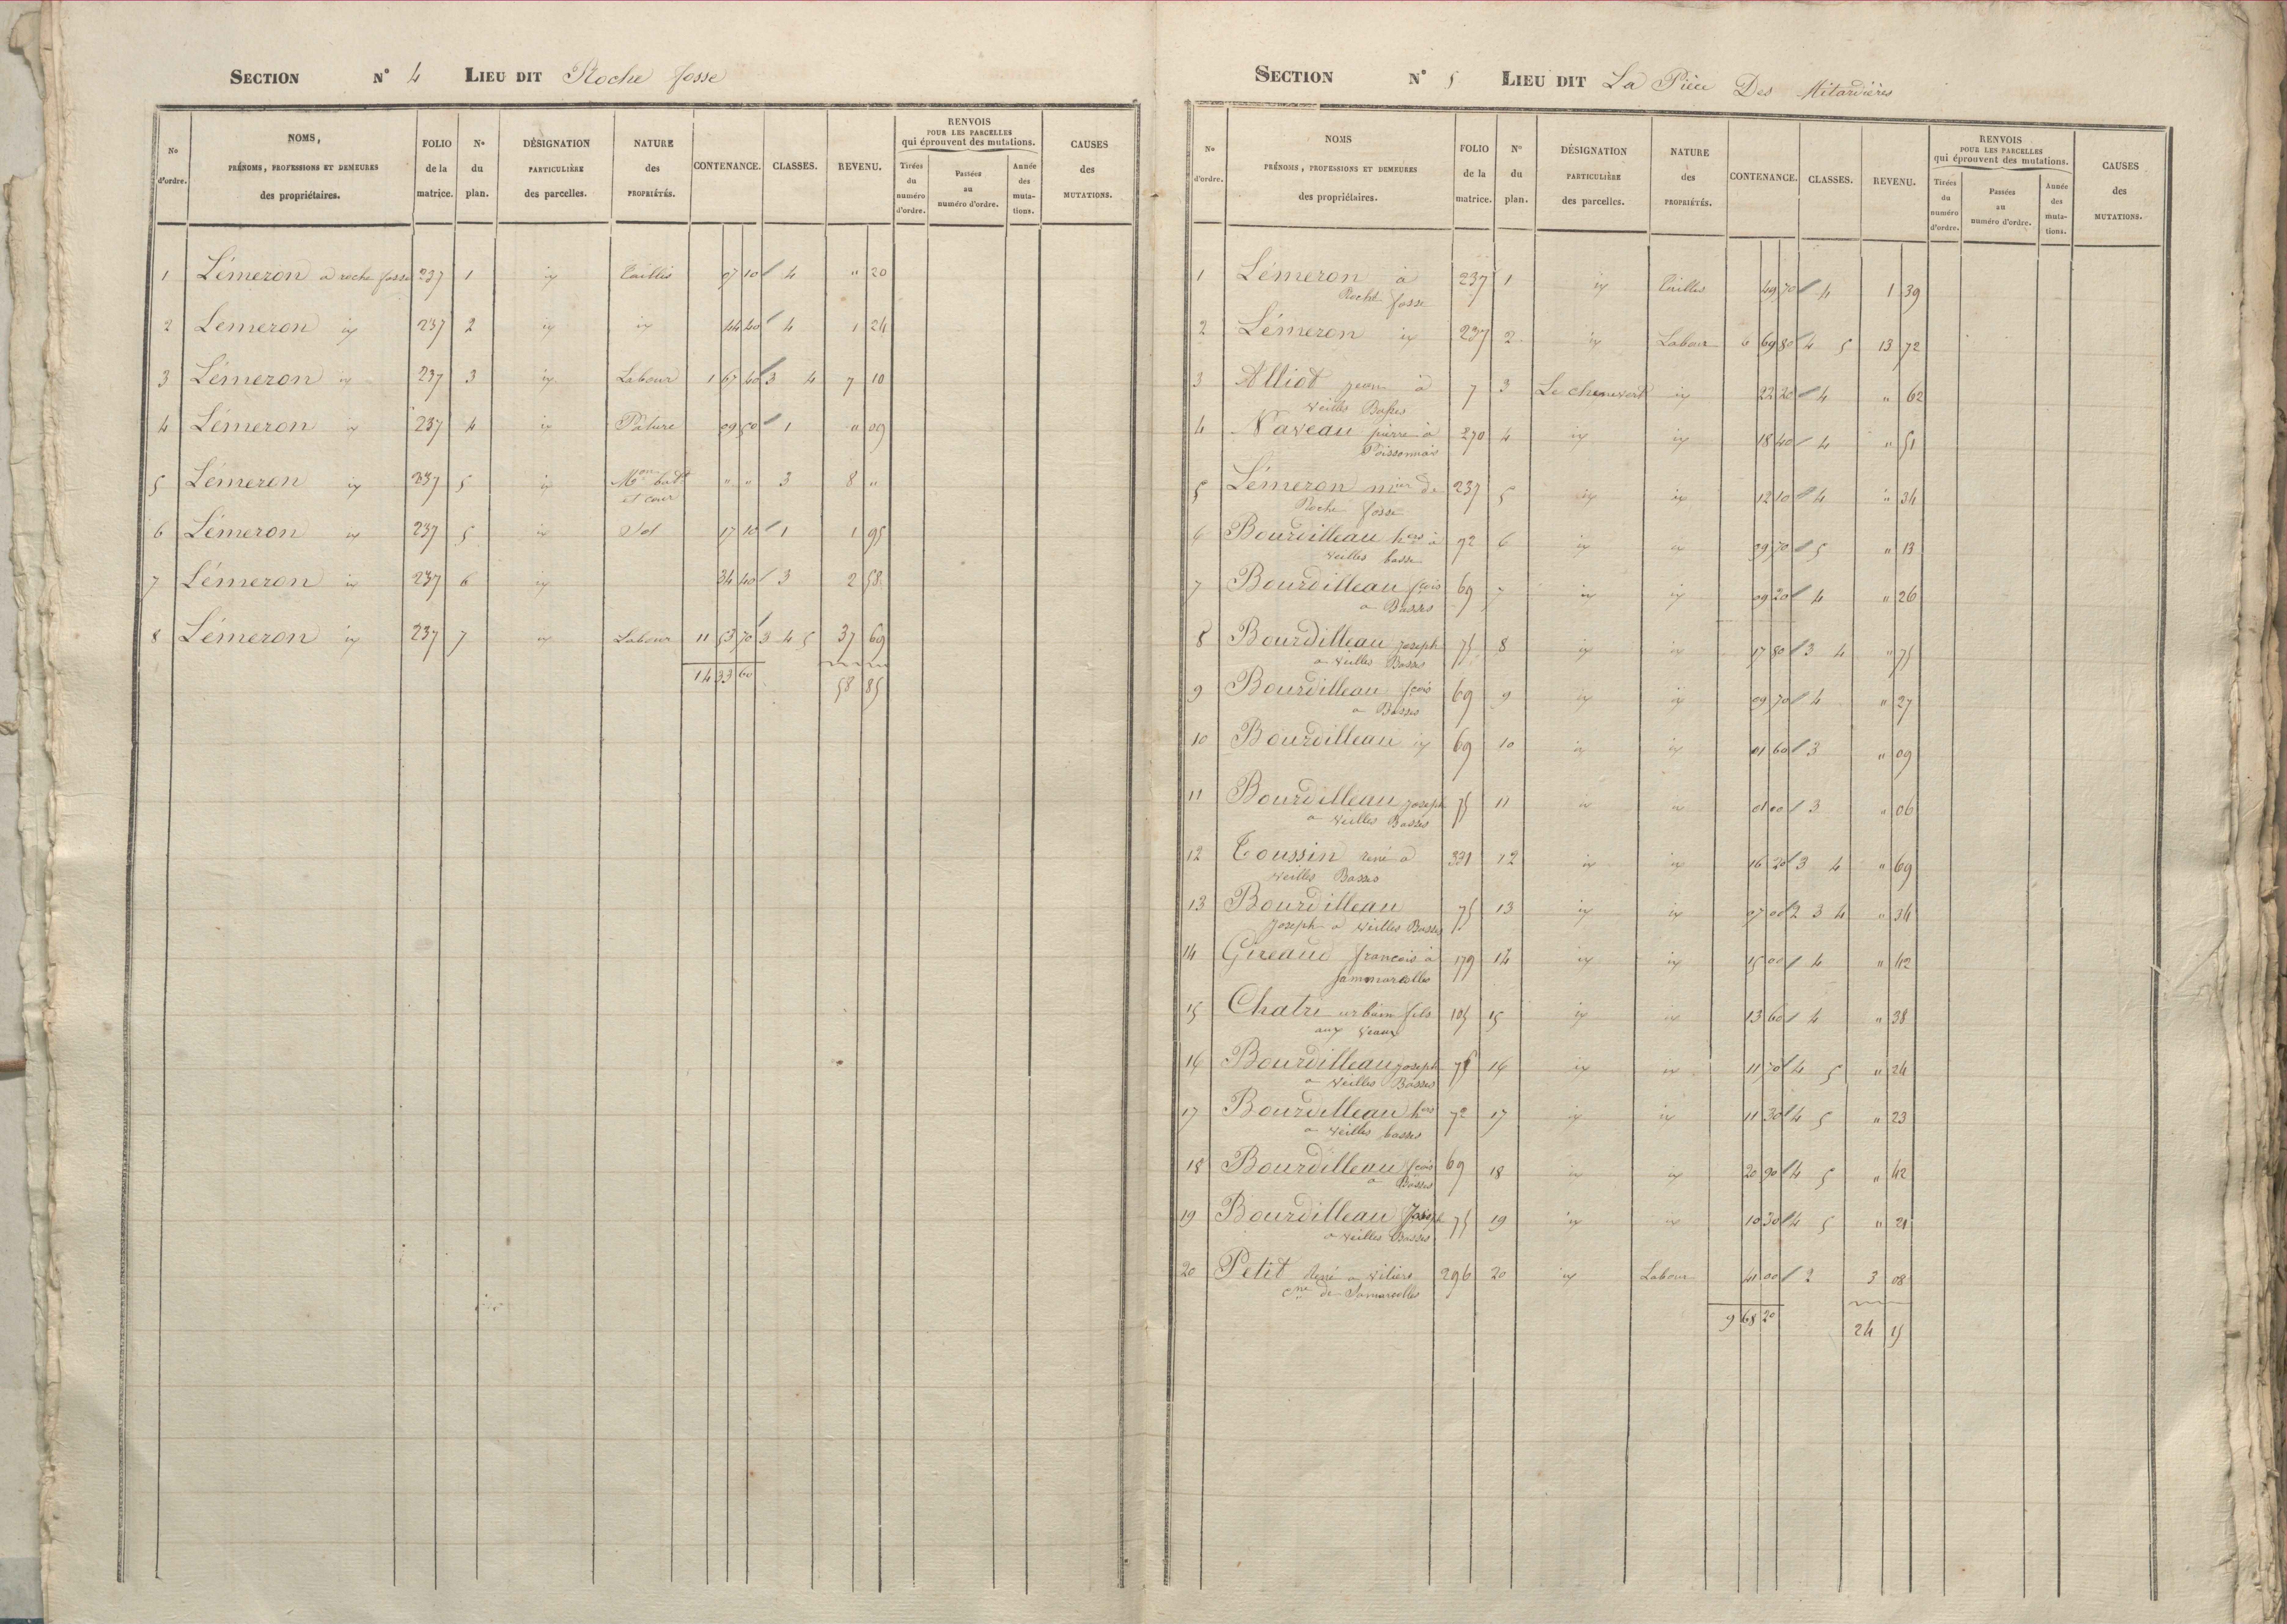 SECTION N° 4 LIEU DIT Roche fosse
No d'ordre. NOMS, PRÉNOMS, PROFESSIONS ET DEMEURES des propriétaires. FOLIO de la matrice. N° du plan. DÉSIGNATION PARTICULIÈRE des parcelles. NATURE des PROPRIÉTÉS. CONTENANCE. CLASSES. REVENU. RENVOIS POUR LES PARCELLES qui éprouvent des mutations. Tirées du numéro d'ordre. Passées au numéro d'ordre. Année des mutations. CAUSES des MUTATIONS.
1 Lémeron a roche fosse 237 1 id Taillis 07 10 4 " 20
2 Lémeron id 237 2 id id 44 40 4 1 24
3 Lémeron id 237 3 id Labour 1 67 40 3 4 7 10
4 Lémeron id 237 4 id Pature 09 50 1 " 09
5 Lémeron id 237 5 id Mon bat " " 3 8 "
et cour
6 Lémeron id 237 5 id Sol 17 10 1 1 95
7 Lémeron id 237 6 id 34 40 3 2 58
8 Lémeron id 237 7 id Labour 11 53 70 3 4 5 37 69
14 33 60 58 85
SECTION N° 5 LIEU DIT La Pièce Des Mitardières
No d'ordre. NOMS PRÉNOMS, PROFESSIONS ET DEMEURES des propriétaires. FOLIO de la matrice. N° du plan. DÉSIGNATION PARTICULIÈRE des parcelles. NATURE des PROPRIÉTÉS. CONTENANCE. CLASSES. REVENU. RENVOIS POUR LES PARCELLES qui éprouvent des mutations. Tirées du numéro d'ordre. Passées au numéro d'ordre. Année des mutations. CAUSES des MUTATIONS.
1 Lémeron à 237 1 id Taillis 49 70 4 1 39
Roche fosse
2 Lémeron id 237 2 id Labour 6 69 80 4 5 13 72
3 Alliot jean à 7 3 Le chenevert id 22 20 4 " 62
veilles Basses
4 Naveau pierre à 270 4 id id 18 40 4 " 51
Poissonnais
5 Lémeron mier de 237 5 id id 12 10 4 " 34
Roche fosse
6 Bourdilleau hers à 72 6 id id 09 70 5 " 13
veilles basse
7 Bourdilleau fcois 69 7 id id 09 20 4 " 26
a Basses
8 Bourdilleau joseph 75 8 id id 17 80 3 4 " 75
a veilles Basses
9 Bourdilleau fcois 69 9 id id 09 70 4 " 27
a Basses
10 Bourdilleau id 69 10 id id 01 60 3 " 09
11 Bourdilleau joseph 75 11 id id 01 00 3 " 06
a veilles Basses
12 Toussin rené a 331 12 id id 16 20 3 4 " 69
veilles Basses
13 Bourdilleau 75 13 id id 07 00 2 3 4 " 34
Joseph a veilles Basses
14 Gireaud francois à 179 14 id id 15 00 4 " 42
Sammarcolles
15 Chatri urbain fils 105 15 id id 13 60 4 " 38
aux veaux
16 Bourdilleau joseph 75 16 id id 11 70 4 5 " 24
a veilles Basses
17 Bourdilleau hers 72 17 id id 11 30 4 5 " 23
a veilles basses
18 Bourdilleau fcois 69 18 id id 20 90 4 5 " 42
a Basses
19 Bourdilleau Joseph 75 19 id id 10 30 4 5 " 21
a veilles Basses
20 Petit René a viliers 296 20 id Labour 41 00 2 3 08
cne de Samarcolles
9 68 20 24 15